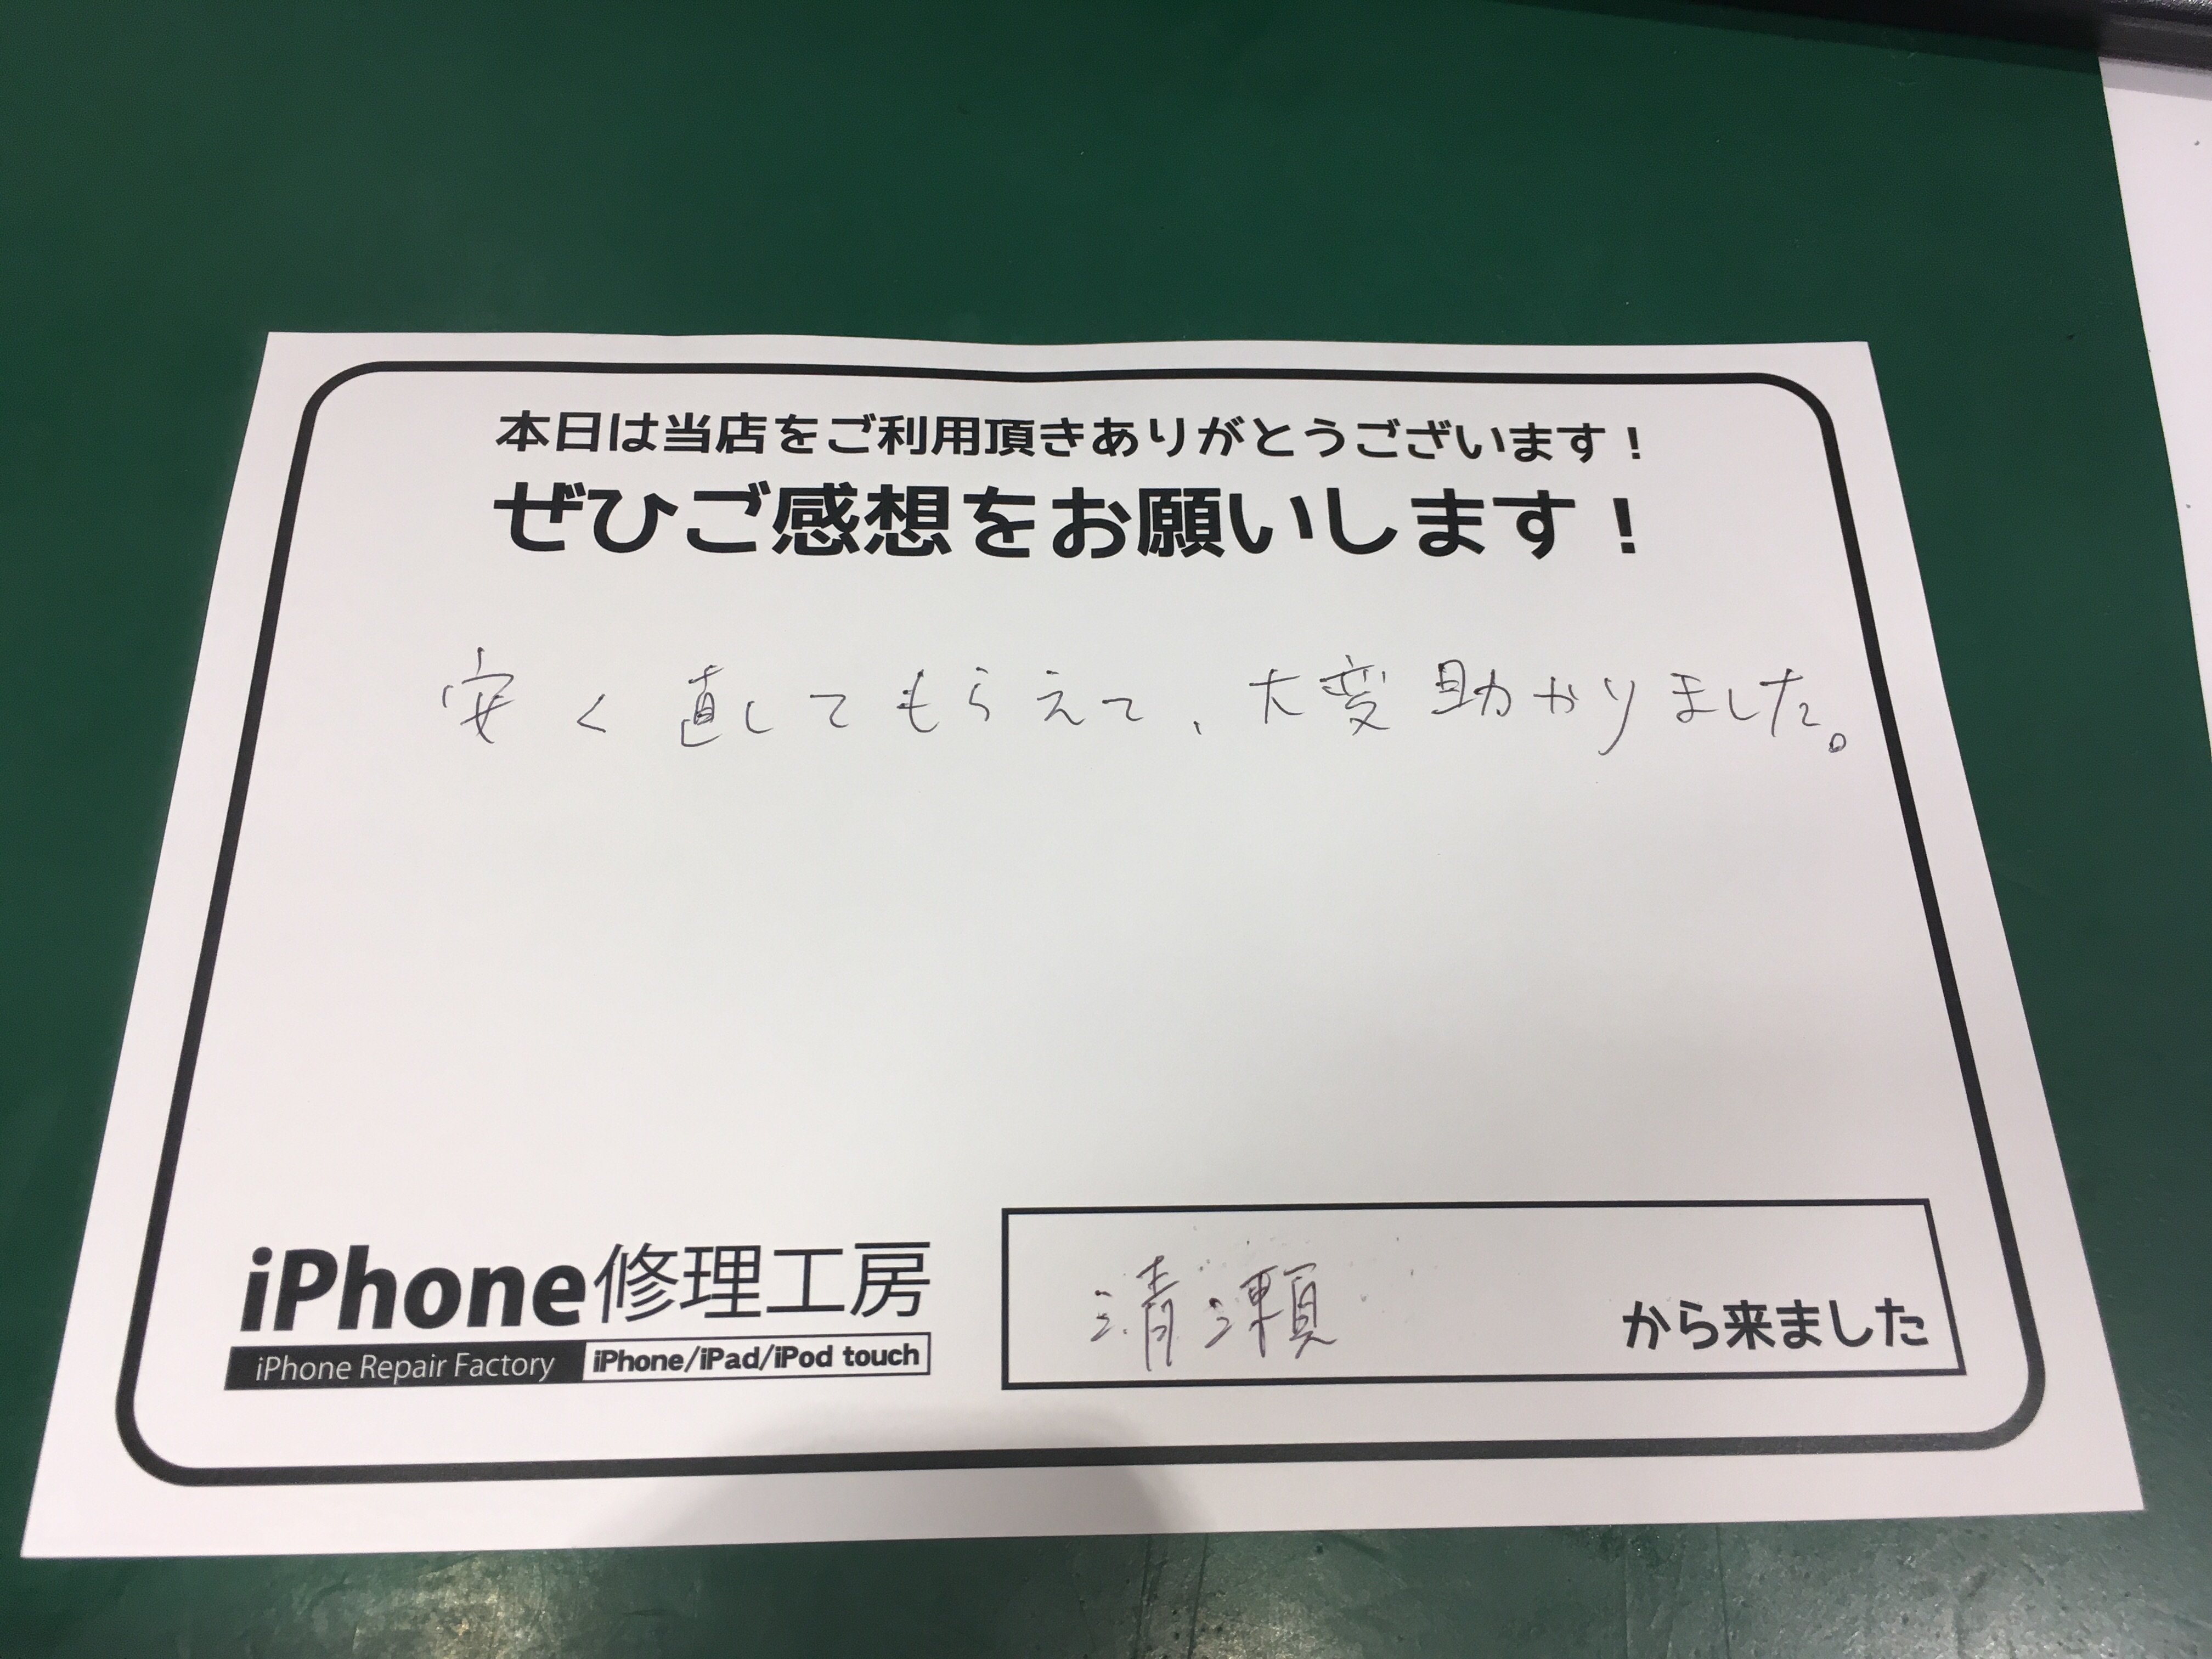 本日は当店をご利用頂きありがとうございます！
ぜひご感想をお願いします！
安く直してもらえて、大変助かりました。
iPhone修理工房
iPhone Repair Factory iPhone/iPad/iPod touch
清瀬 から来ました